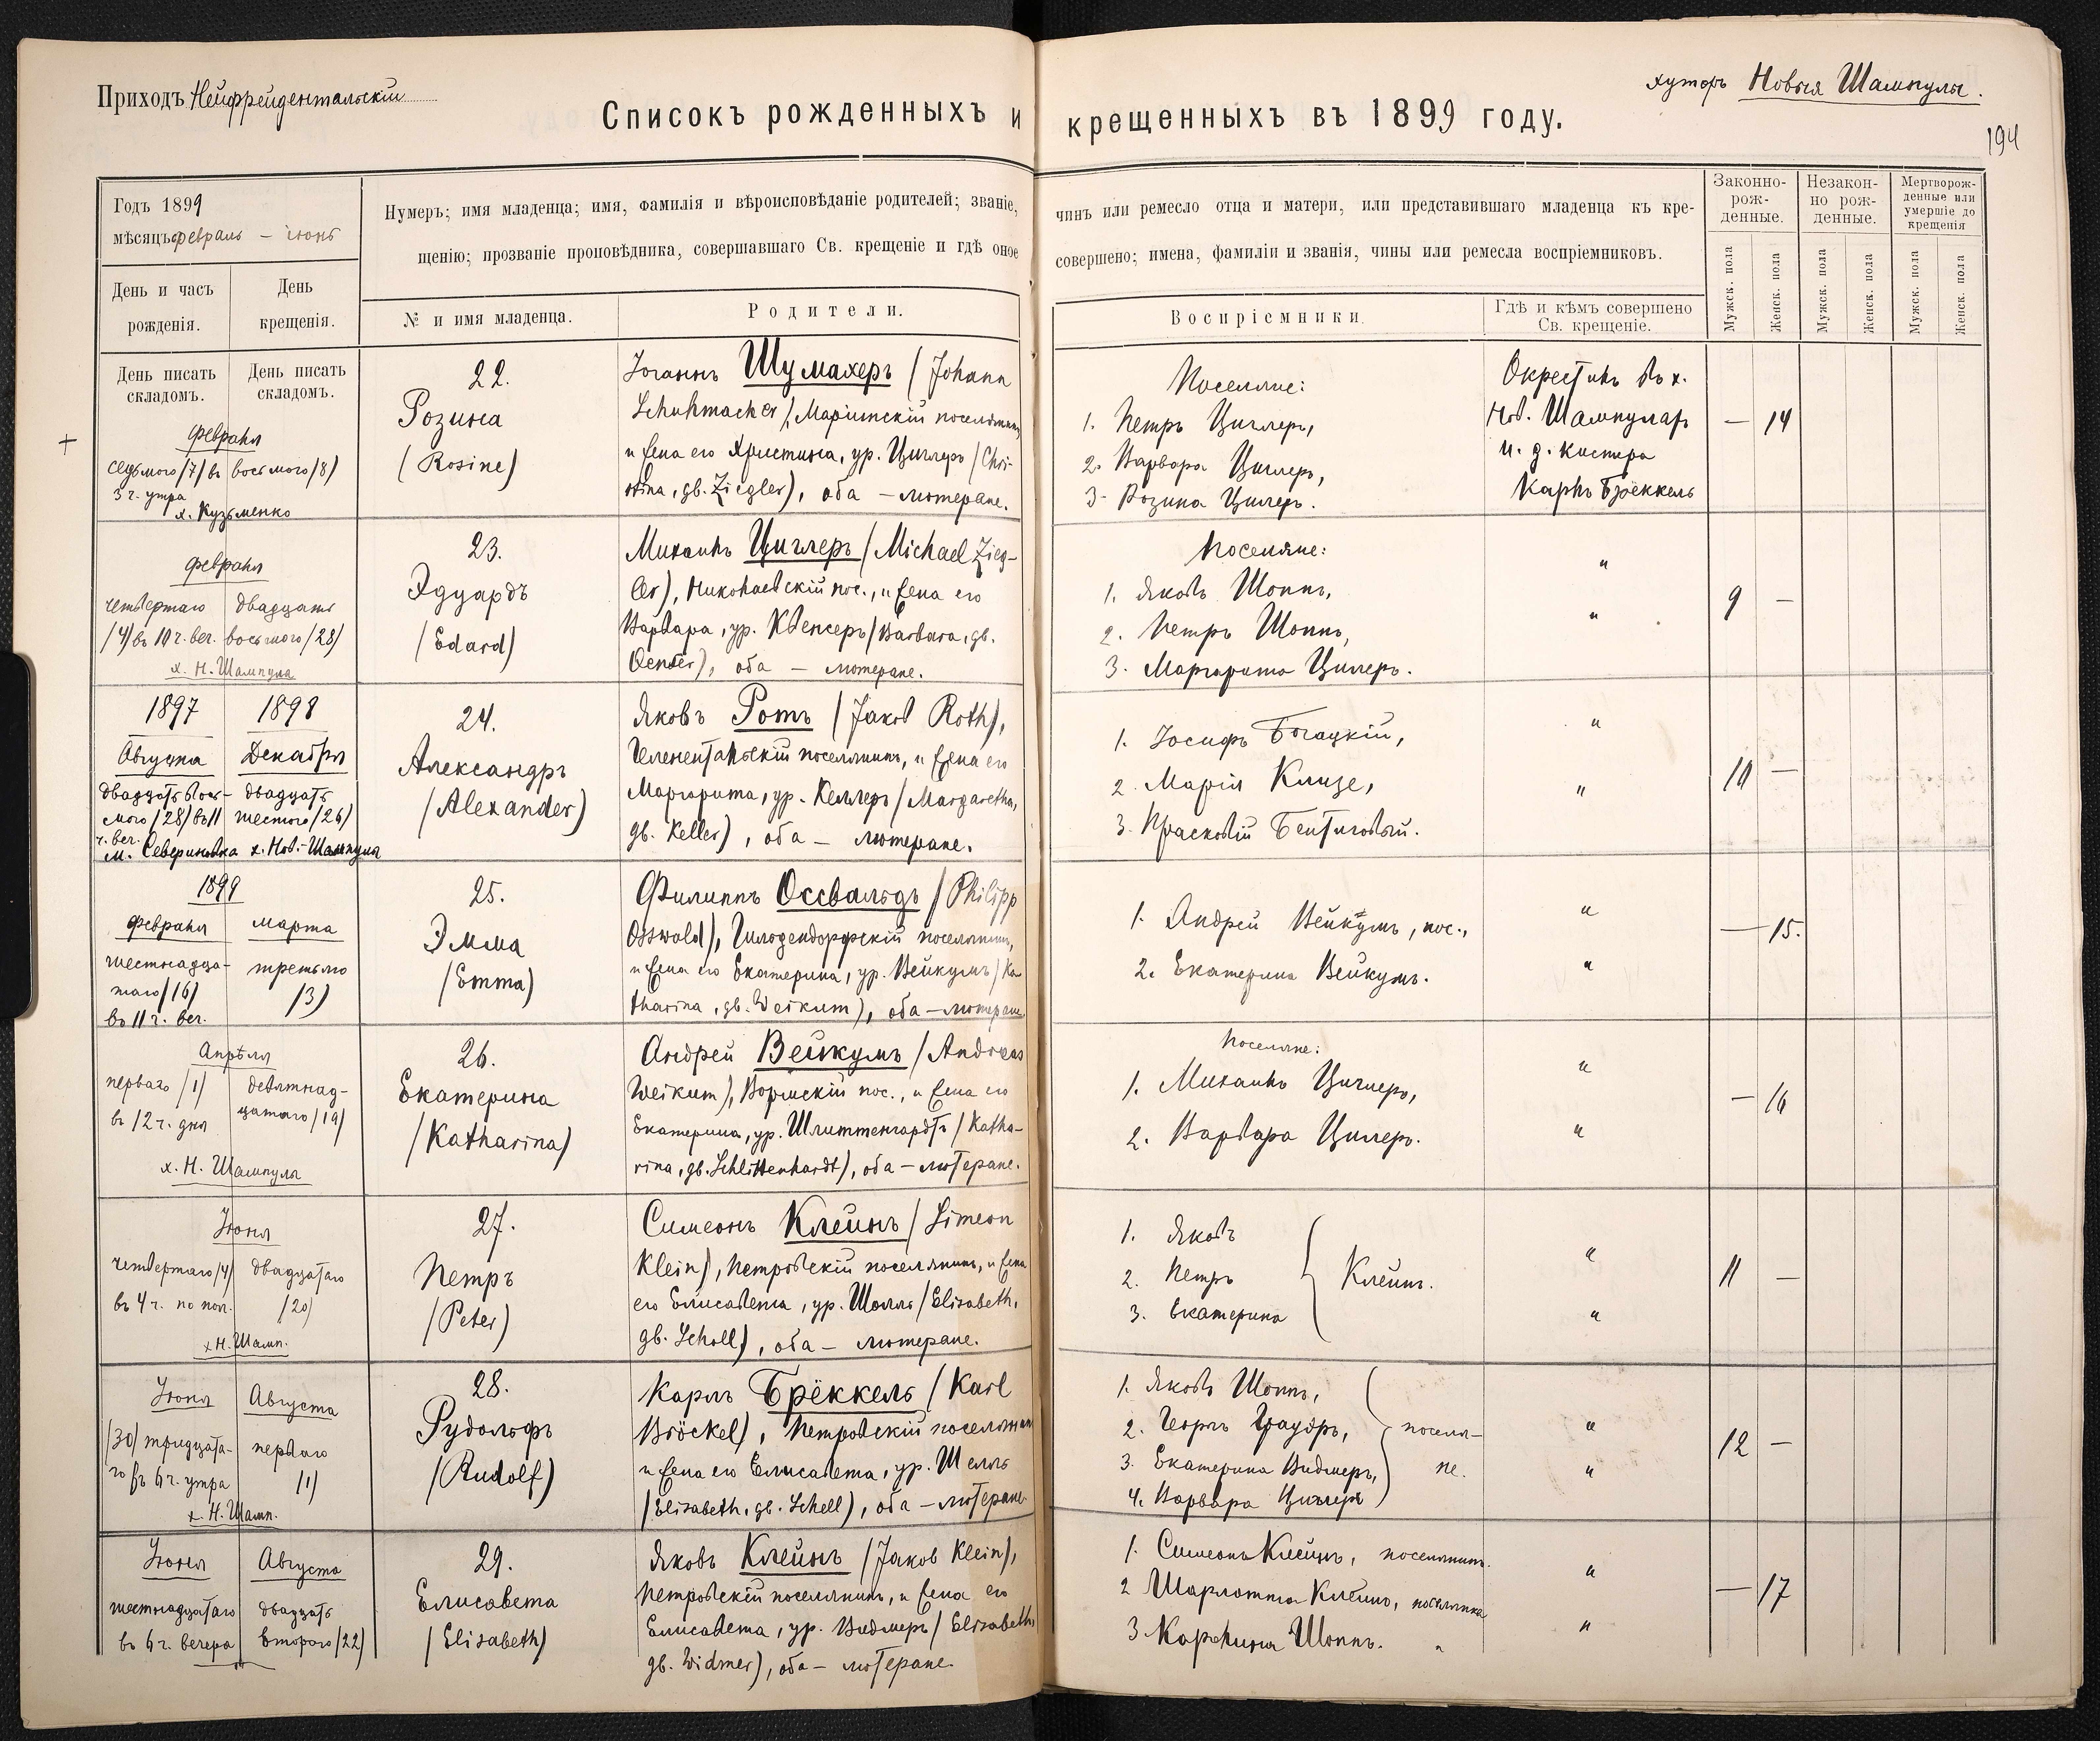 Приходъ Нейфрейдентальскій
хуторъ Новыя Шампулы.
Списокъ рожденныхъ и крещенныхъ въ 1899 году.
194
Годъ 1899
мѣсяцъ февраль – іюнь
День и часъ рожденія.
День крещенія.
День писать складомъ.
День писать складомъ.
Нумеръ; имя младенца; имя, фамилія и вѣроисповѣданіе родителей; званіе, чинъ или ремесло отца и матери, или представившаго младенца къ кре-
щенію; прозваніе проповѣдника, совершавшаго Св. крещеніе и гдѣ оное совершено; имена, фамиліи и званія, чины или ремесла воспріемниковъ.
№ и имя младенца.
Родители.
Воспріемники
Гдѣ и кѣмъ совершено
Св. крещеніе.
Законно-
рож-
денные.
Незакон-
но рож-
денные.
Мертворож-
денные или
умершіе до
крещенія
Мужск. пола
Женск. пола
Мужск. пола
Женск. пола
Мужск. пола
Женск. пола
+
Февраля
седьмого /7/ въ
3 ч. утра
восьмого /8/
х. Кузьменко
22.
Розина
(Rosine)
Іоганнъ Шумахеръ (Johann
Schuhmacher), Маріинскій поселянинъ
и жена его Христина, ур. Циглеръ (Chri-
stina, gb. Ziegler), оба – лютеране.
Поселяне:
1. Петръ Циглеръ,
2. Варвара Циглеръ,
3. Розина Циглеръ.
Окрестилъ въ х.
Нов. Шампулахъ
и. д. кистера
Карлъ Брёккель
– 14
Февраля
четвертаго
/4/ въ 10 ч. веч.
двадцать
восьмого /28/
х. Н. Шампула
23.
Эдуардъ
(Edard)
Михаилъ Циглеръ (Michael Zieg-
ler), Николаевскій пос., и жена его
Варвара, ур. Квенсеръ (Barbara, gb.
Qenser), оба – лютеране.
Поселяне:
1. Яковъ Шоппъ,
2. Петръ Шоппъ,
3. Маргарита Циглеръ.
"
"
9 –
1897
Августа
двадцать вось-
мого /28/ въ 11
ч. веч.
м. Севериновка
1898
Декабря
двадцать
шестого /26/
х. Нов.-Шампула
24.
Александръ
(Alexander)
Яковъ Ротъ (Jakob Roth),
поселянинъ, и жена его
Маргарита, ур. Келлеръ (Margaretha,
gb. Keller), оба – лютеране.
1. Іосифъ Богацкій,
2. Марія Клизе,
3.
"
"
10 –
1899
Февраля
шестнадца-
таго /16/
въ 11 ч. веч.
марта
третьяго
/3/
25.
Эмма
(Emma)
Филиппъ Оссвальдъ (Philipp
Osswald), Гилдендорфскій поселянинъ,
и жена его Екатерина, ур. Вейкумъ (Ka-
tharina, gb. Weikum), оба – лютеране
1. Андрей Вейкумъ, пос.,
2. Екатерина Вейкумъ.
"
"
– 15.
Апрѣля
перваго /1/
въ 12 ч. дня
девятнад-
цатаго /19/
х. Н. Шампулы
26.
Екатерина
(Katharina)
Андрей Вейкумъ (Andreas
Weikum), Вормскій пос., и жена его
Екатерина, ур. Шлиттенгардтъ (Katha-
rina, gb. Schlittenhardt), оба – лютеране.
Поселяне:
1. Михаилъ Циглеръ,
2. Варвара Циглеръ.
"
"
– 16
Іюня
четвертаго /4/
въ 4 ч. по пол.
двадцатаго
/20/
х Н. Шамп.
27.
Петръ
(Peter)
Симеонъ Клейнъ (Simeon
Klein), Петровскій поселянинъ, и жена
его Елисавета, ур. Шолль (Elisabeth,
gb. Scholl), оба – лютеране.
1. Яковъ
2. Петръ
3. Екатерина
Клейнъ.
"
"
11 –
Іюня
/30/ тридцата-
го въ 6 ч. утра
Августа
перваго
/1/
х. Н. Шамп.
28.
Рудольфъ
(Rudolf)
Карлъ Брёккель (Karl
Bröckel), Петровскій поселянинъ
и жена его Елисавета, ур. Шелль
(Elisabeth, gb. Schell), оба – лютеране
1. Яковъ Шоппъ,
2. Георгъ Граубръ,
3. Екатерина Видмеръ,
4. Варвара Циглеръ
поселя-
не.
"
"
12 –
Іюня
шестнадцатаго
въ 6 ч. вечера
Августа
двадцать
второго /22/
"
29.
Елисавета
(Elisabeth)
Яковъ Клейнъ (Jakob Klein),
Петровскій поселянинъ, и жена его
Елисавета, ур. Видмеръ (Elisabeth,
gb. Widmer), оба – лютеране.
1. Симеонъ Клейнъ, поселянинъ.
2 Шарлотта Клейнъ, поселянка
3 Каролина Шоппъ. "
"
"
– 17